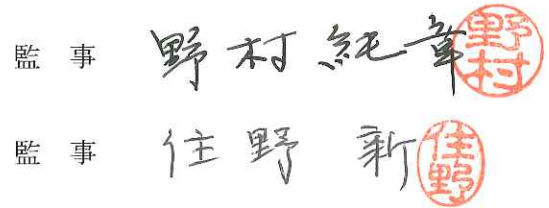 監 事 野村 純章 野村
監 事 住野 新 住野